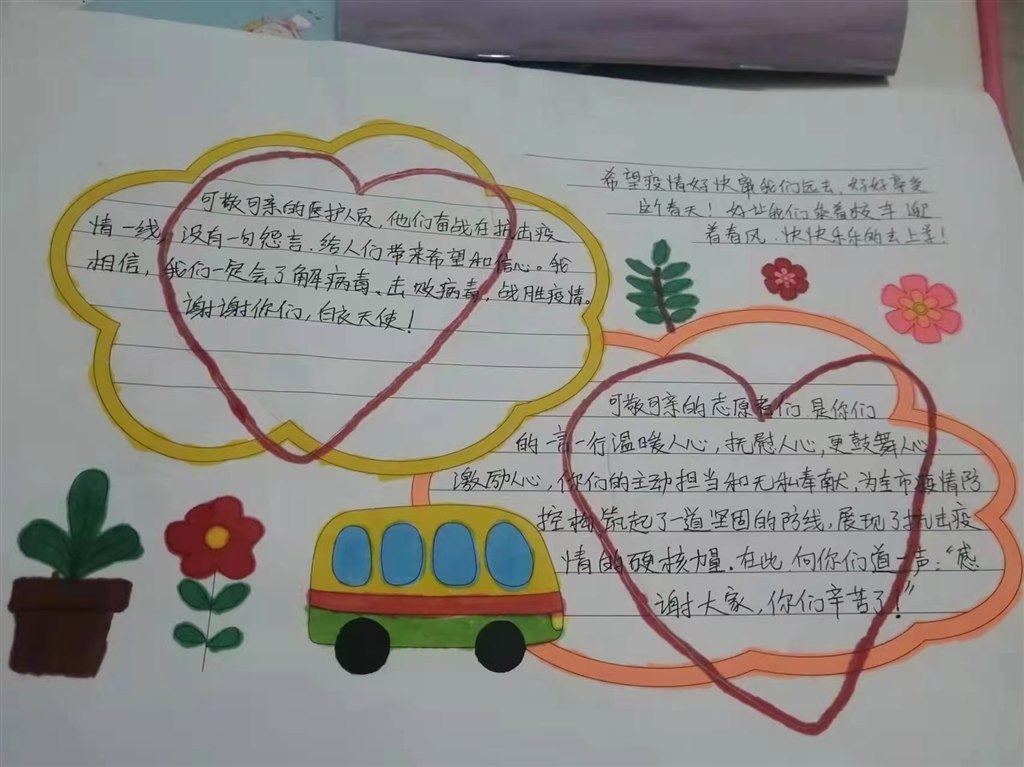 可敬可亲的医护人员，他们奋战在抗击疫
情一线，没有一句怨言，给人们带来希望和信心。我
相信，我们一定会了解病毒、击败病毒，战胜疫情。
谢谢你们，白衣天使！
希望疫情好快离我们远去，好好享受
这个春天！好让我们坐着校车迎
着春风，快快乐乐的去上学！
可敬可亲的志愿者们 是你们
的一言一行温暖人心，抚慰人心，更鼓舞人心
激励人心，你们的主动担当和无私奉献，为全市疫情防
控构筑起了一道坚固的防线，展现了抗击疫
情的硬核力量．在此 向你们道一声：“感
谢大家，你们辛苦了！”